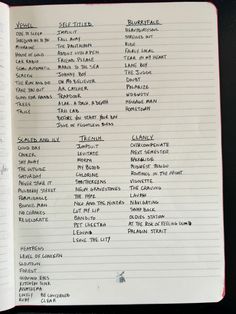 VESSEL
ODE TO SLEEP
HOLDING ON TO YOU
MIGRAINE
HOUSE OF GOLD
CAR RADIO
SEMI-AUTOMATIC
SCREEN
THE RUN AND GO
FAKE YOU OUT
GUNS FOR HANDS
TREES
TRUCE
SELF TITLED
IMPLICIT
FALL AWAY
THE PANTALOON
ADDICT WITH A PEN
FRIEND, PLEASE
MARCH TO THE SEA
JOHNNY BOY
OH MS BELIEVER
AIR CATCHER
TRAPDOOR
A CAR, A TORCH, A DEATH
TAXI CAB
BEFORE YOU START YOUR DAY
ISLE OF FLIGHTLESS BIRDS
BLURRYFACE
HEAVYDIRTYSOUL
STRESSED OUT
RIDE
FAIRLY LOCAL
TEAR IN MY HEART
LANE BOY
THE JUDGE
DOUBT
POLARIZE
WDBWOTV
MESSAGE MAN
HOMETOWN
SCALED AND ICY
GOOD DAY
CHOKER
SHY AWAY
THE OUTSIDE
SATURDAY
NEVER TAKE IT
MULBERRY STREET
FORMIDABLE
BOUNCE MAN
NO CHANCES
REDECORATE
TRENCH
JUMPSUIT
LEVITATE
MORPH
MY BLOOD
CHLORINE
SMITHEREENS
NEON GRAVESTONES
THE HYPE
NICO AND THE NINERS
CUT MY LIP
BANDITO
PET CHEETAH
LEGEND
LEAVE THE CITY
CLANCY
OVERCOMPENSATE
NEXT SEMESTER
BACKSLIDE
MIDWEST INDIGO
ROUTINES IN THE NIGHT
VIGNETTE
THE CRAVING
LAVISH
NAVIGATING
SNAP BACK
OLDIES STATION
AT THE RISK OF FEELING DUMB
PALADIN STRAIT
HEATHENS
LEVEL OF CONCERN
SLOWTOWN
FOREST
GLOWING EYES
KITCHEN SINK
ANATHEMA
LOVELY
RUBY
BE CONCERNED
CLEAR